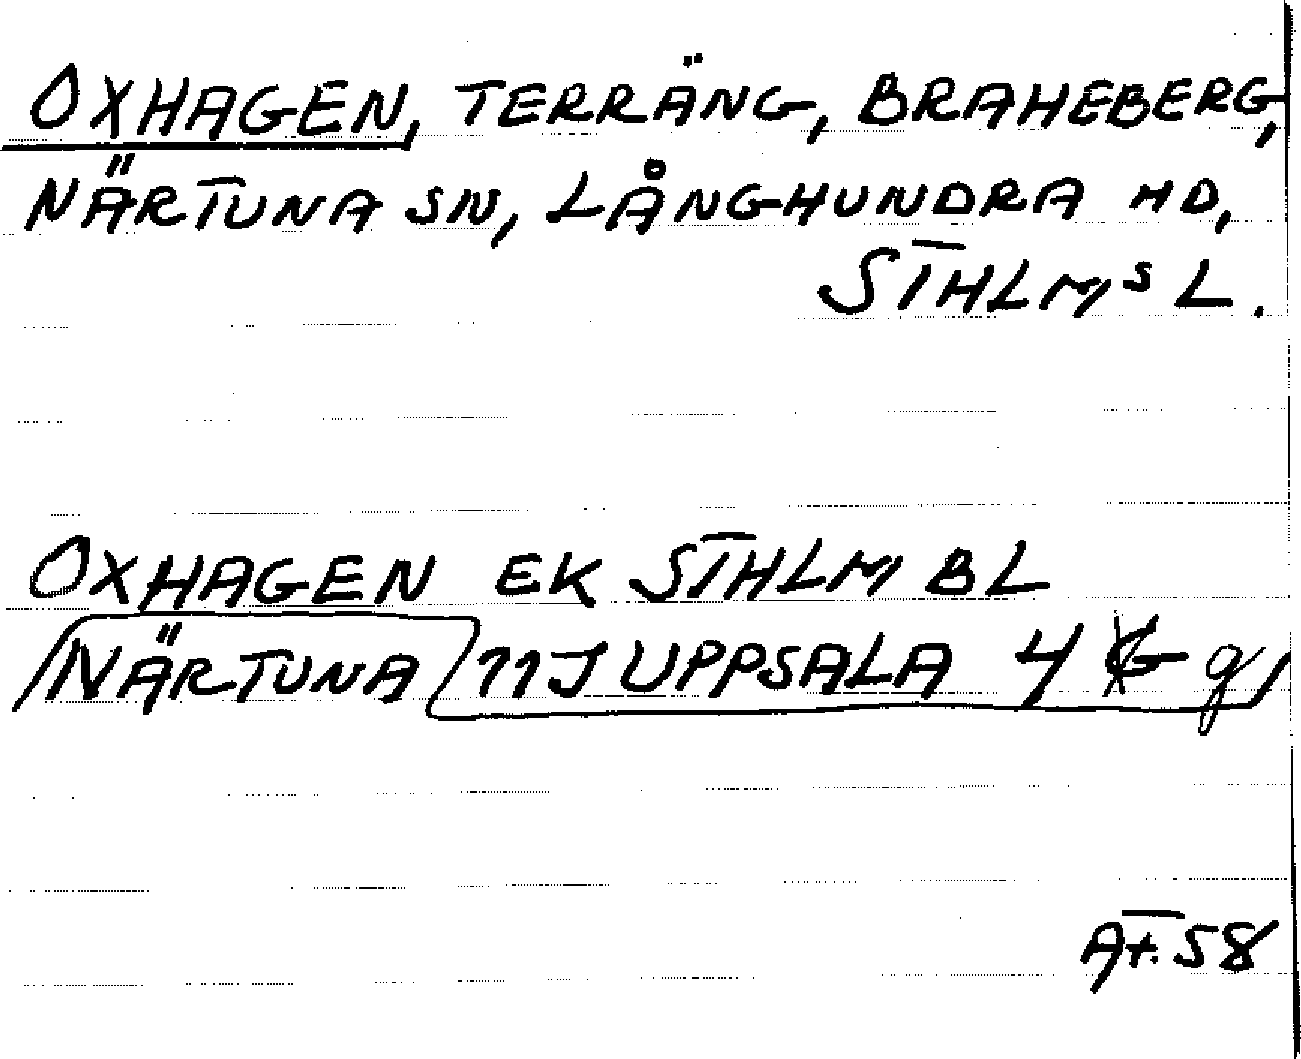 OXHAGEN, TERRÄNG, BRAHEBERG,
NÄRTUNA SN, LÅNGHUNDRA HD,
STHLMS L.
OXHAGEN EK STHLM BL
NÄRTUNA 11J UPPSALA 4 G g
AT. 58